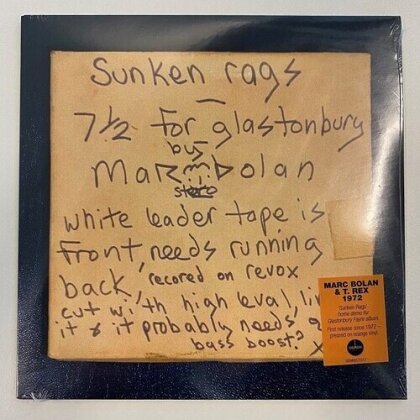 Sunken rags
7 1/2 for glastonbury
by
MaRc bolan
stereo
white leader tape is
front, needs running
back, recored on revox
cut with high leval
it & it probably needs a
bass boost? x
MARC BOLAN
& T. REX
1972
'Sunken Rags'
home demo for
Glastonbury Fayre album.
First release since 1972 –
pressed on orange vinyl.
demon